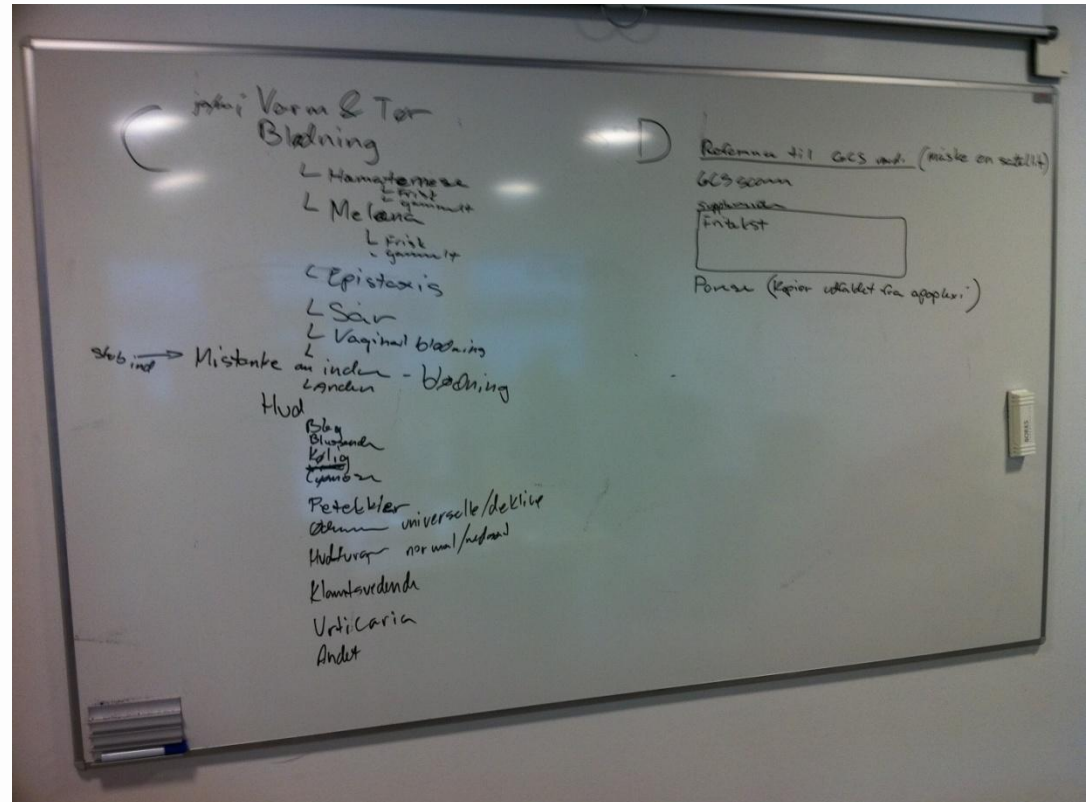 C
ja/nej Varm & Tør
Blødning
Hæmatemese
Frisk
gammelt
Melæna
Frisk
gammelt
Epistaxis
Sår
Vaginal blødning
skub ind → Mistanke om indre - blødning
Anden
Hud
Bleg
Blussende
Kølig
Cyanose
Petekkier
universelle/deklive
Hudturgor normal/nedsat
Klamtsvedende
Urticaria
Andet
D
Reference til GCS værdi (måske en satellit)
GCS scoren
supplerende
Fritekst
Parese (Kopier udfaldet fra apopleksi)